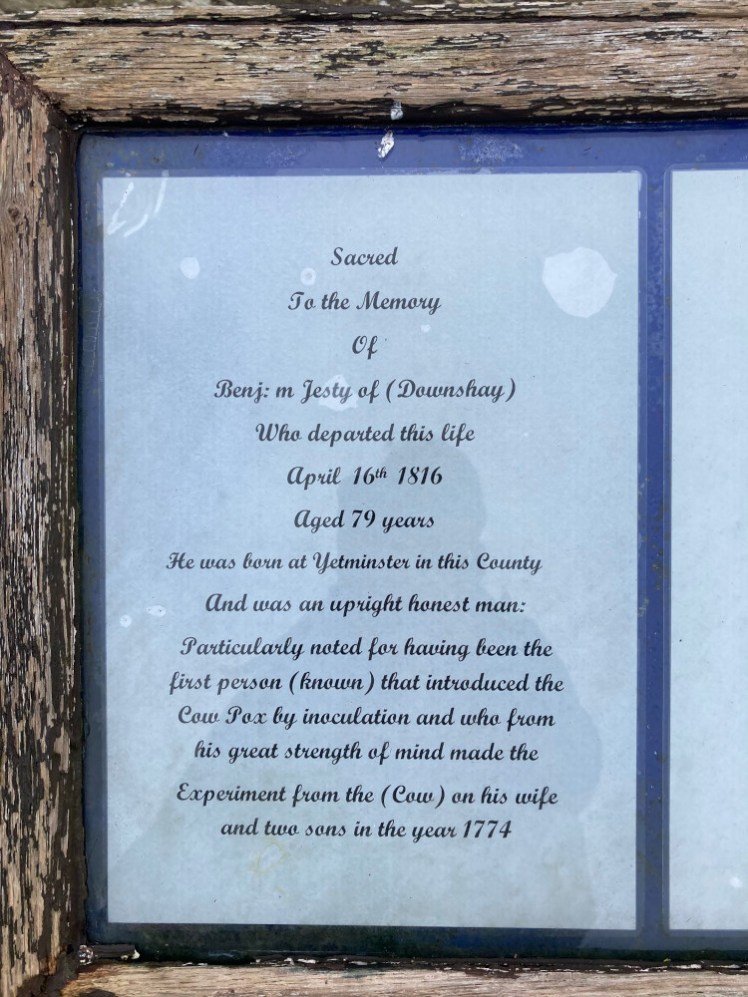 Sacred
To the Memory
Of
Benj: m Jesty of (Downshay)
Who departed this life
April 16th 1816
Aged 79 years
He was born at Yetminster in this County
And was an upright honest man:
Particularly noted for having been the
first person (known) that introduced the
Cow Pox by inoculation and who from
his great strength of mind made the
Experiment from the (Cow) on his wife
and two sons in the year 1774